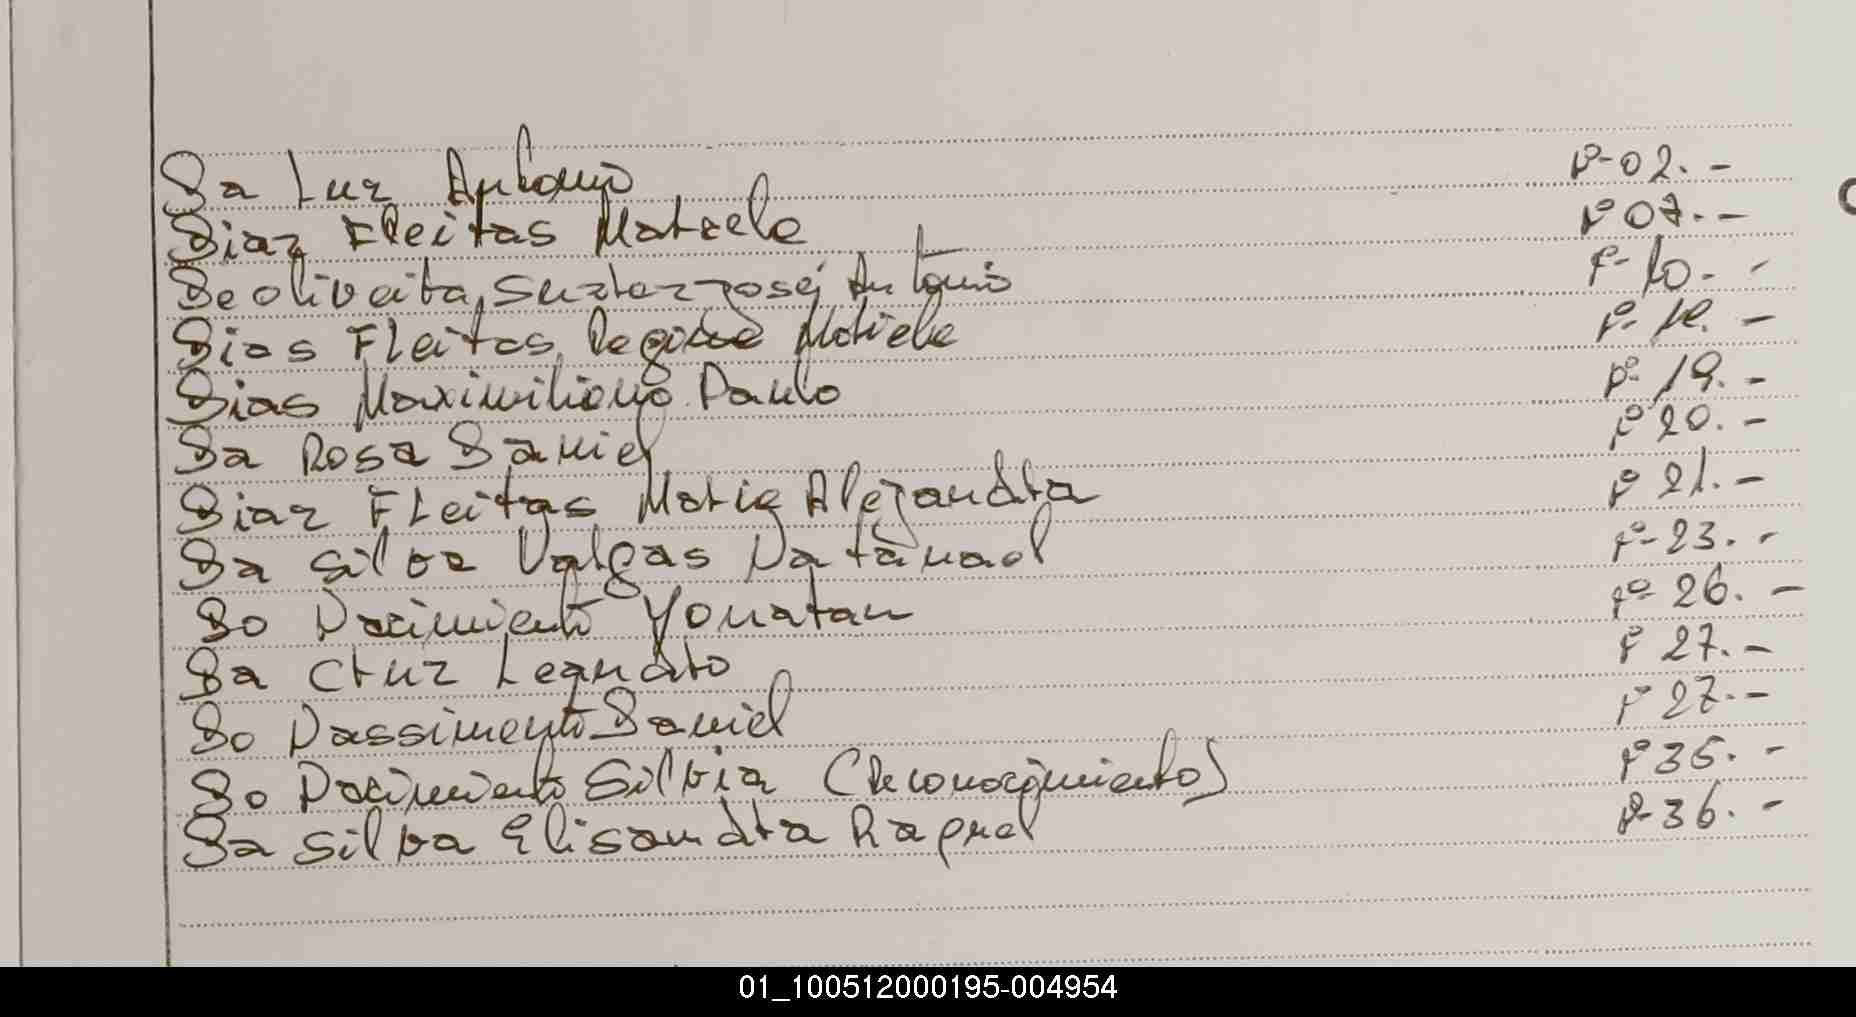 Da Luz Antonio Fº-02.-
Diaz Fleitas Mariele Fº 07.-
De oliveira, Suster José Antonio F-10.-
Dias Fleitas, Regina Mariele F-18.-
Dias Maximiliano Paulo Fº- 19.-
Da Rosa Daniel Fº 20.-
Diaz Fleitas Maria Alejandra Fº 21.-
Da Silva Valgas Natanael Fº-23.-
Do Nacimiento Yonatan Fº- 26.-
Da Cruz Leandro Fº 27.-
Do Nassimento Daniel Fº 27.-
Do Nacimiento Silvia (Reconocimiento) Fº 35.-
Da Silva Elisandra Raquel Fº-36.-
01_100512000195-004954